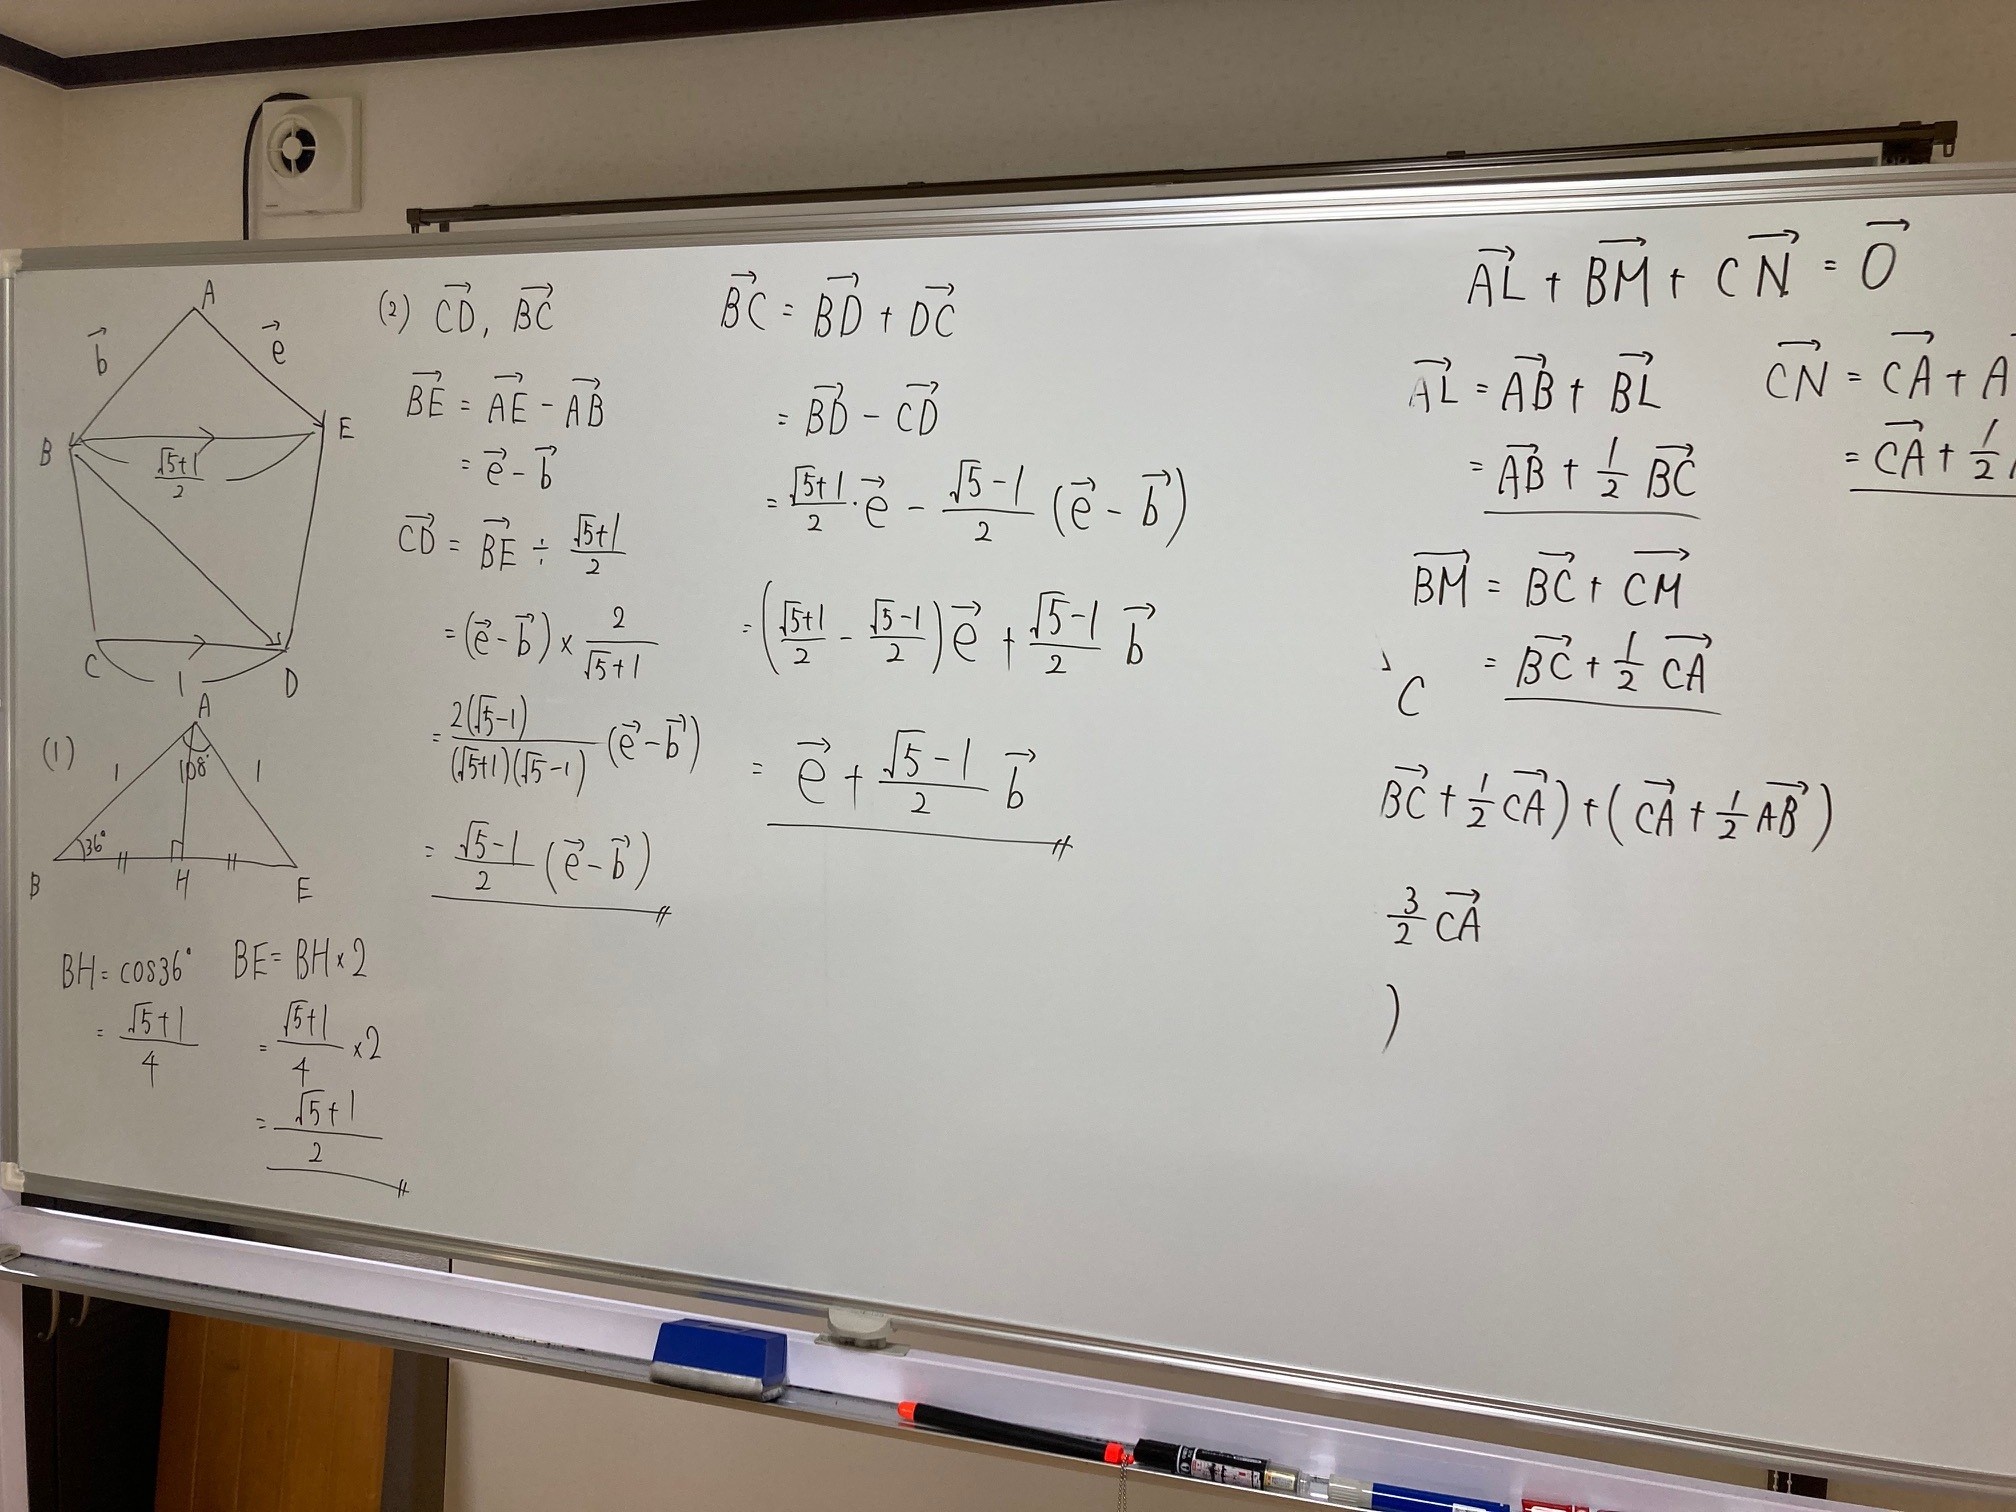 A
b⃗
e⃗
B
E
(√5+1)/2
C
1
D
(1)
A
1
108°
1
36°
B
H
E
BH = cos36°
= (√5+1)/4
BE = BH×2
= (√5+1)/4 ×2
= (√5+1)/2
(2) CD⃗, BC⃗
BE⃗ = AE⃗ - AB⃗
= e⃗ - b⃗
CD⃗ = BE⃗ ÷ (√5+1)/2
= (e⃗ - b⃗) × 2/(√5+1)
= 2(√5-1)/(√5+1)(√5-1) (e⃗ - b⃗)
= (√5-1)/2 (e⃗ - b⃗)
BC⃗ = BD⃗ + DC⃗
= BD⃗ - CD⃗
= (√5+1)/2 · e⃗ - (√5-1)/2 (e⃗ - b⃗)
= ((√5+1)/2 - (√5-1)/2) e⃗ + (√5-1)/2 b⃗
= e⃗ + (√5-1)/2 b⃗
AL⃗ + BM⃗ + CN⃗ = 0⃗
AL⃗ = AB⃗ + BL⃗
= AB⃗ + 1/2 BC⃗
CN⃗ = CA⃗ + A
= CA⃗ + 1/2
BM⃗ = BC⃗ + CM⃗
= BC⃗ + 1/2 CA⃗
C
BC⃗ + 1/2 CA⃗) + (CA⃗ + 1/2 AB⃗)
3/2 CA⃗
)